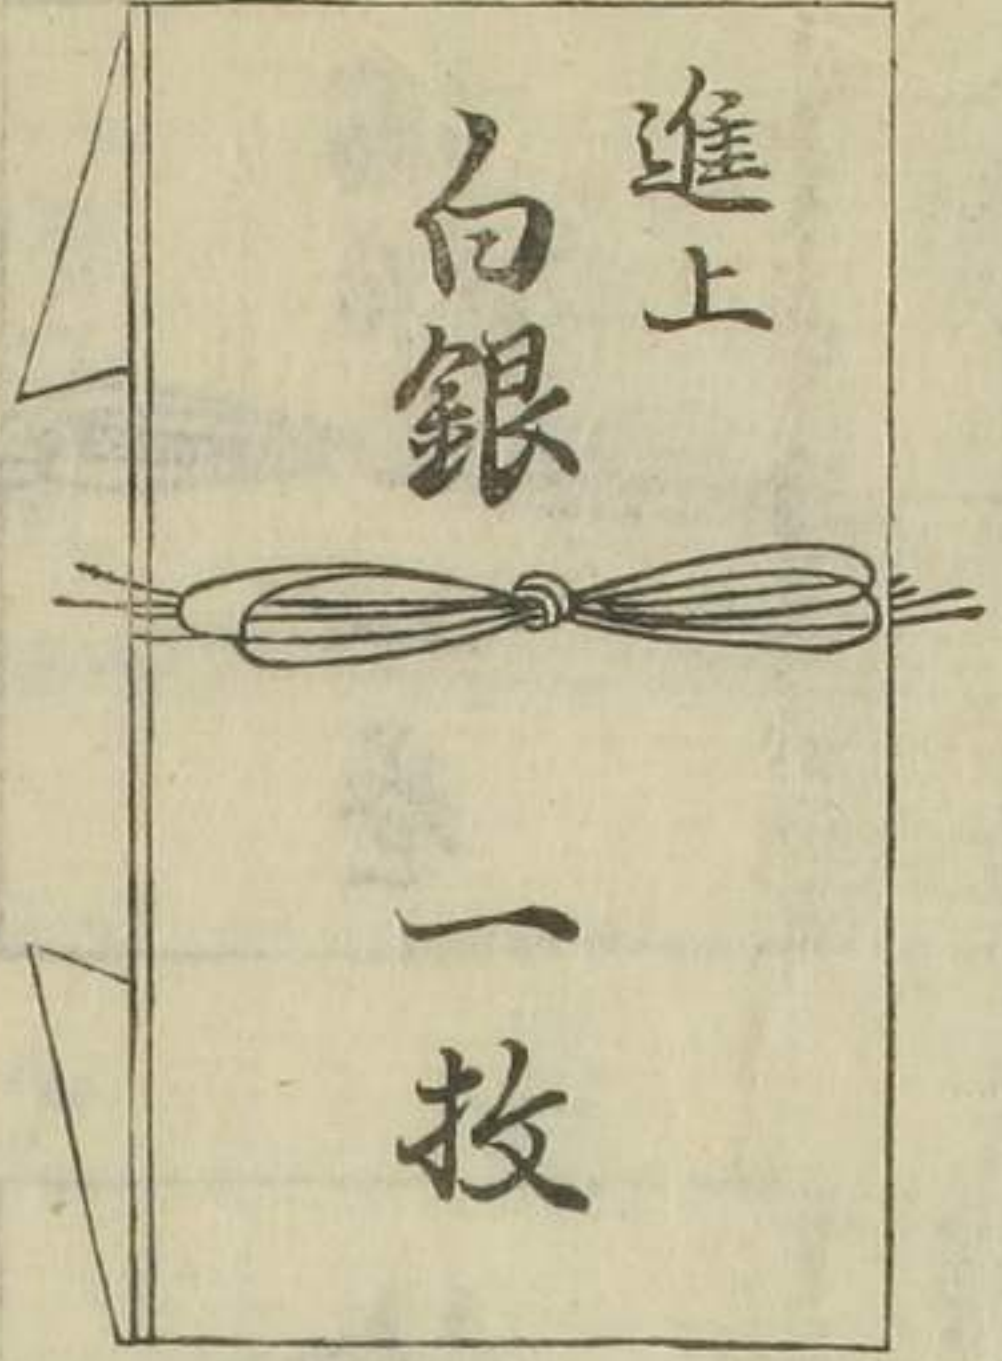 進上
白銀一枚